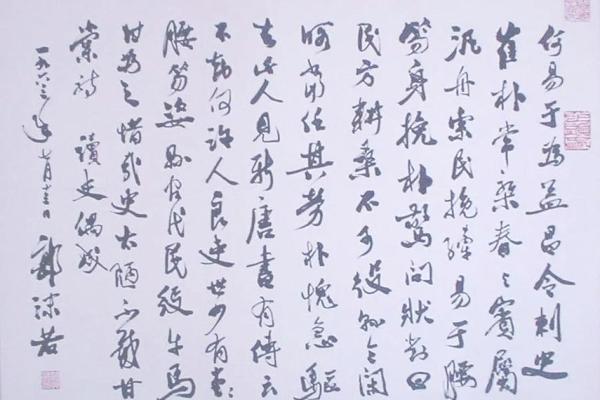 何易于為益昌令刺史
崔朴常乘春與賓屬
汎舟索民挽繂易于腰
笏身挽朴驚問狀對曰
民方耕桑不可役令閑
當任其勞朴愧急驅
去此人見新唐書有傳云
不知何許人良吏世少有
腰笏姿代民役牛馬
甘為之惜哉史太陋不甘
棠詩 讀史偶成
一九六三年七月十三日 郭沫若